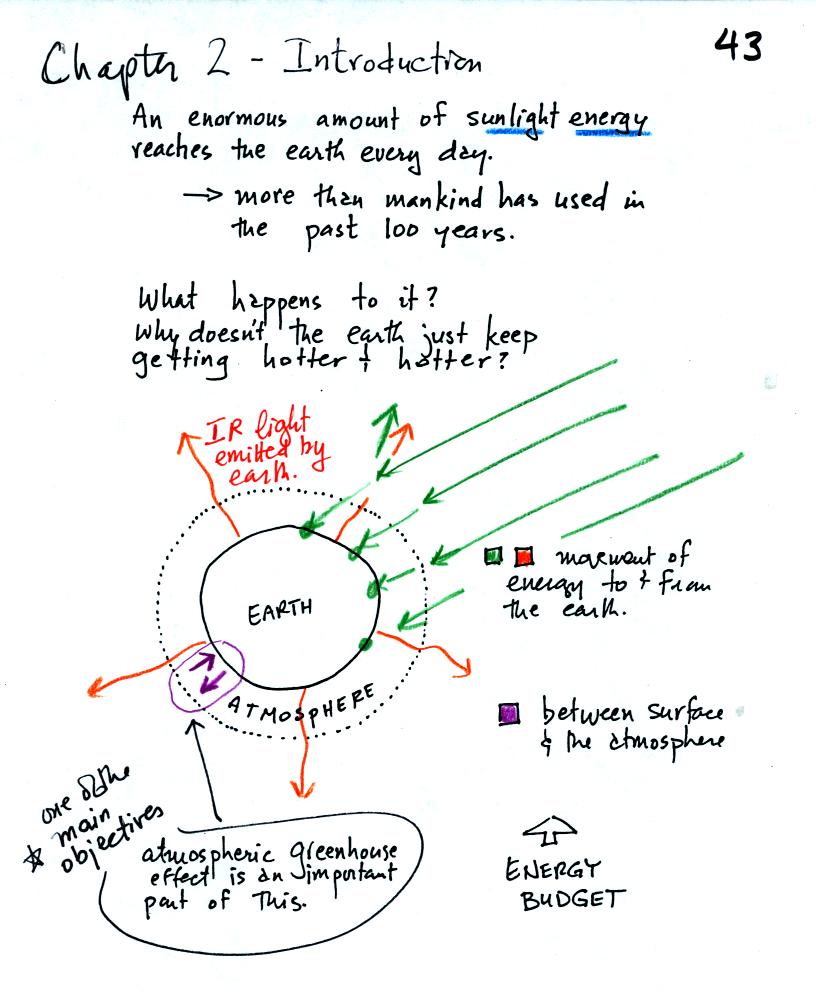 43
Chapter 2 - Introduction
An enormous amount of sunlight energy
reaches the earth every day.
→ more than mankind has used in
the past 100 years.
What happens to it?
Why doesn't the earth just keep
getting hotter & hotter?
IR light
emitted by
earth.
EARTH
ATMOSPHERE
movement of
energy to & from
the earth.
between surface
& the atmosphere
one of the
main
☆ objectives
atmospheric greenhouse
effect is an important
part of this.
ENERGY
BUDGET